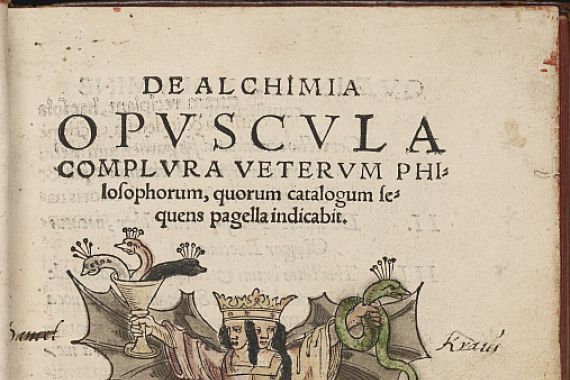 DE ALCHIMIA
OPVSCVLA
COMPLVRA VETERVM PHI-
losophorum, quorum catalogum se-
quens pagella indicabit.
Daniel
Kraus